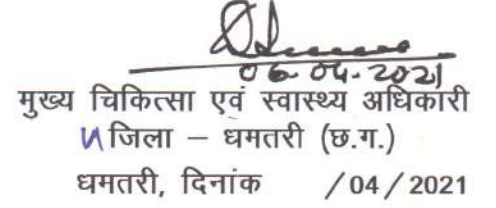 06-04-2021
मुख्य चिकित्सा एवं स्वास्थ्य अधिकारी
जिला – धमतरी (छ.ग.)
धमतरी, दिनांक /04/2021